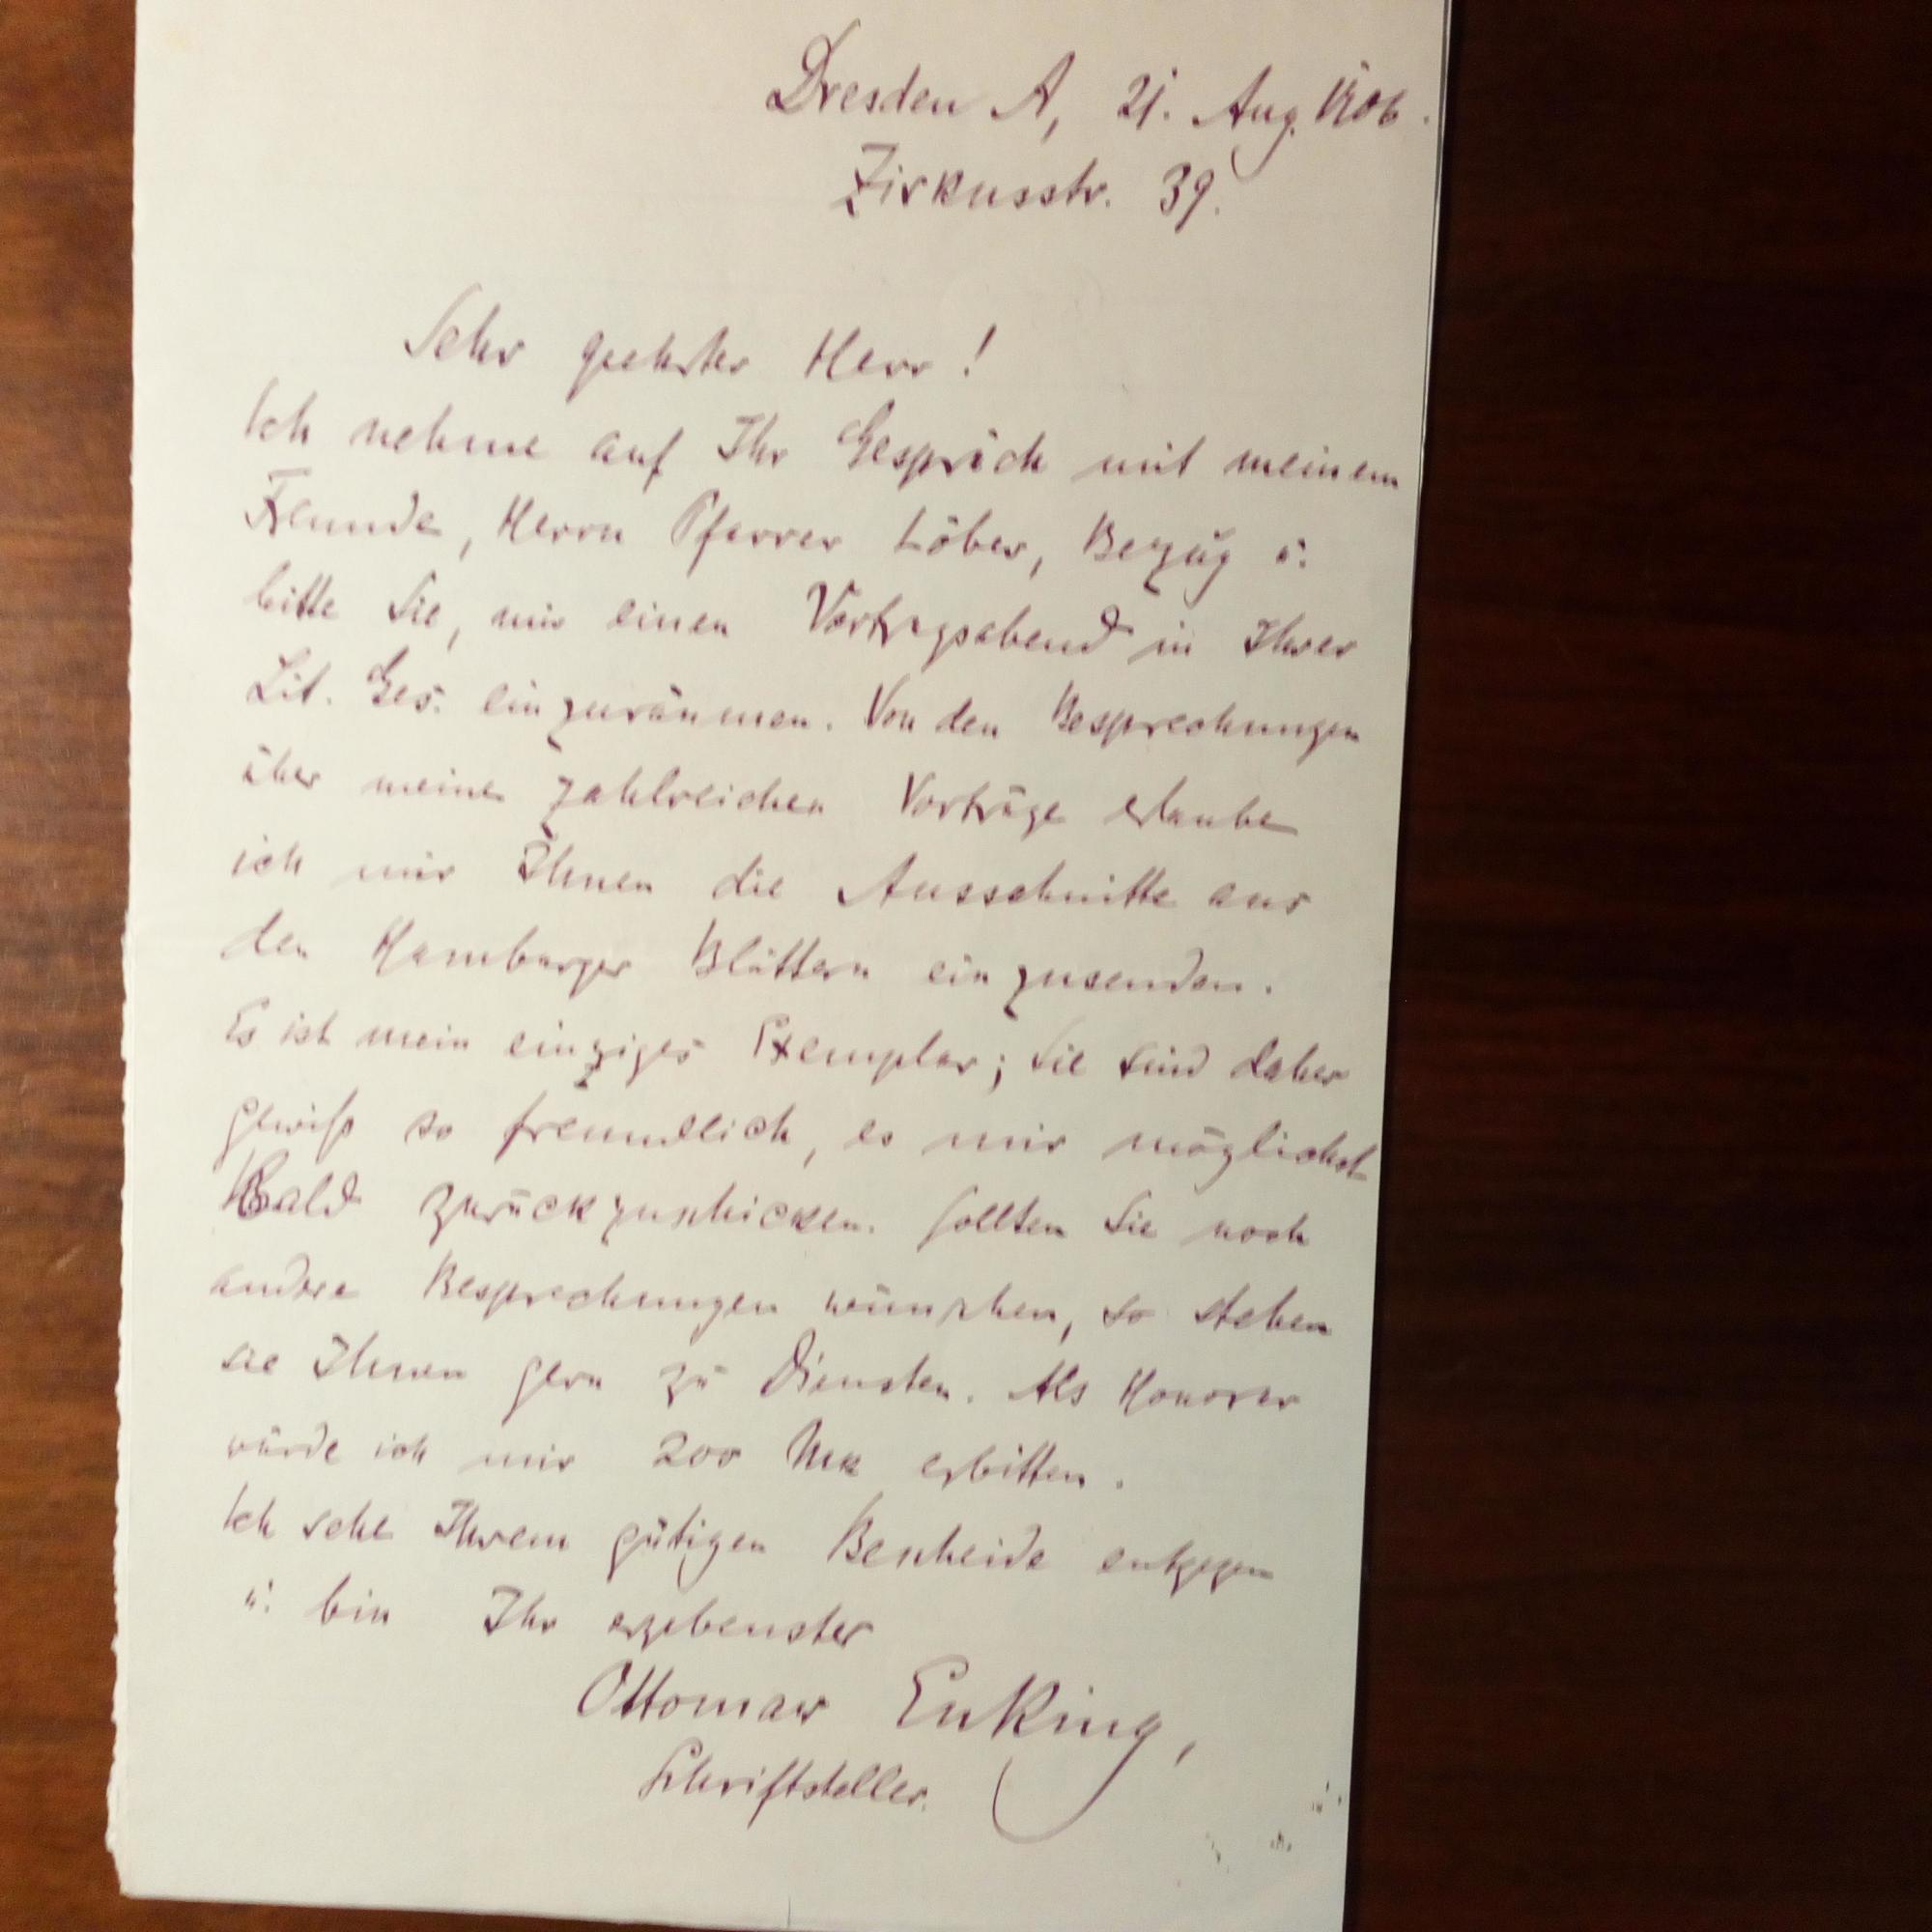 Dresden A, 21. Aug. 1906.
Zirkusstr. 39.
Sehr geehrter Herr!
Ich nehme auf Ihr Gespräch mit meinem
Freunde, Herrn Pfarrer Löber, Bezug u.
bitte Sie, mir einen Vortragsabend in Ihrer
Lit. Ges. einzuräumen. Von den Besprechungen
über meine zahlreichen Vorträge erlaube
ich mir Ihnen die Ausschnitte aus
den Hamburger Blättern einzusenden.
Es ist mein einziges Exemplar; Sie sind daher
gewiß so freundlich, es mir möglichst
bald zurückzuschicken. Sollten Sie noch
andere Besprechungen wünschen, so stehen
sie Ihnen gern zu Diensten. Als Honorar
würde ich mir 200 Mk erbitten.
Ich sehe Ihrem gütigen Bescheide entgegen
u. bin Ihr ergebenster
Ottomar Enking,
Schriftsteller.